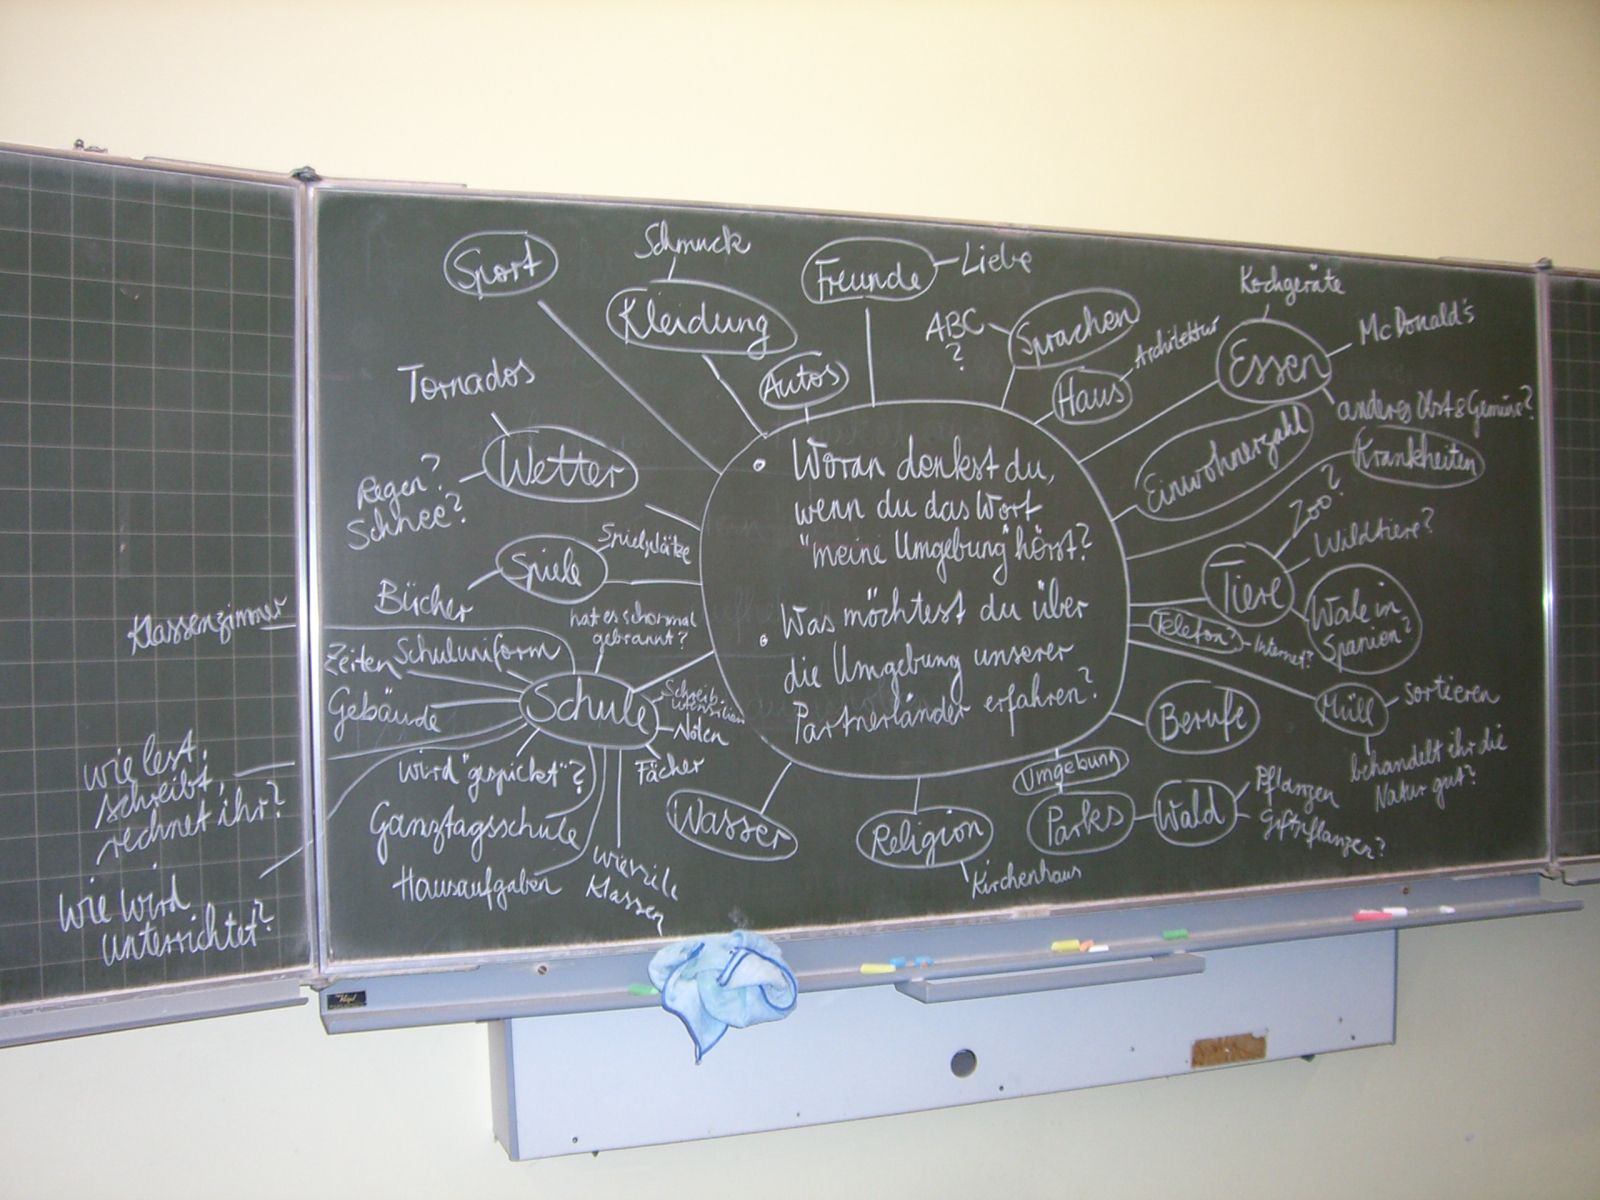 Sport
Schmuck
Kleidung
Freunde
Liebe
Autos
ABC
?
Sprachen
Haus
Architektur
Kochgeräte
Essen
McDonald's
anderes Obst & Gemüse?
Einwohnerzahl
Krankheiten
Tornados
Wetter
Regen?
Schnee?
Spielplätze
Spiele
Bücher
• Woran denkst du,
wenn du das Wort
"meine Umgebung" hörst?
• Was möchtest du über
die Umgebung unserer
Partnerländer erfahren?
Zoo?
Wildtiere?
Tiere
Wale in
Spanien?
Telefon?
Internet?
Müll
sortieren
behandelt ihr die
Natur gut?
Berufe
Umgebung
Parks
Wald
Pflanzen
Giftpflanzen?
Religion
Kirchenhaus
Wasser
hat es schon mal
gebrannt?
Schule
Schreib-
utensilien
Noten
Fächer
wieviele
Klassen
Klassenzimmer
Schuluniform
Zeiten
Gebäude
wird "gespickt"?
Ganztagsschule
Hausaufgaben
wie lest,
schreibt,
rechnet ihr?
wie wird
unterrichtet?